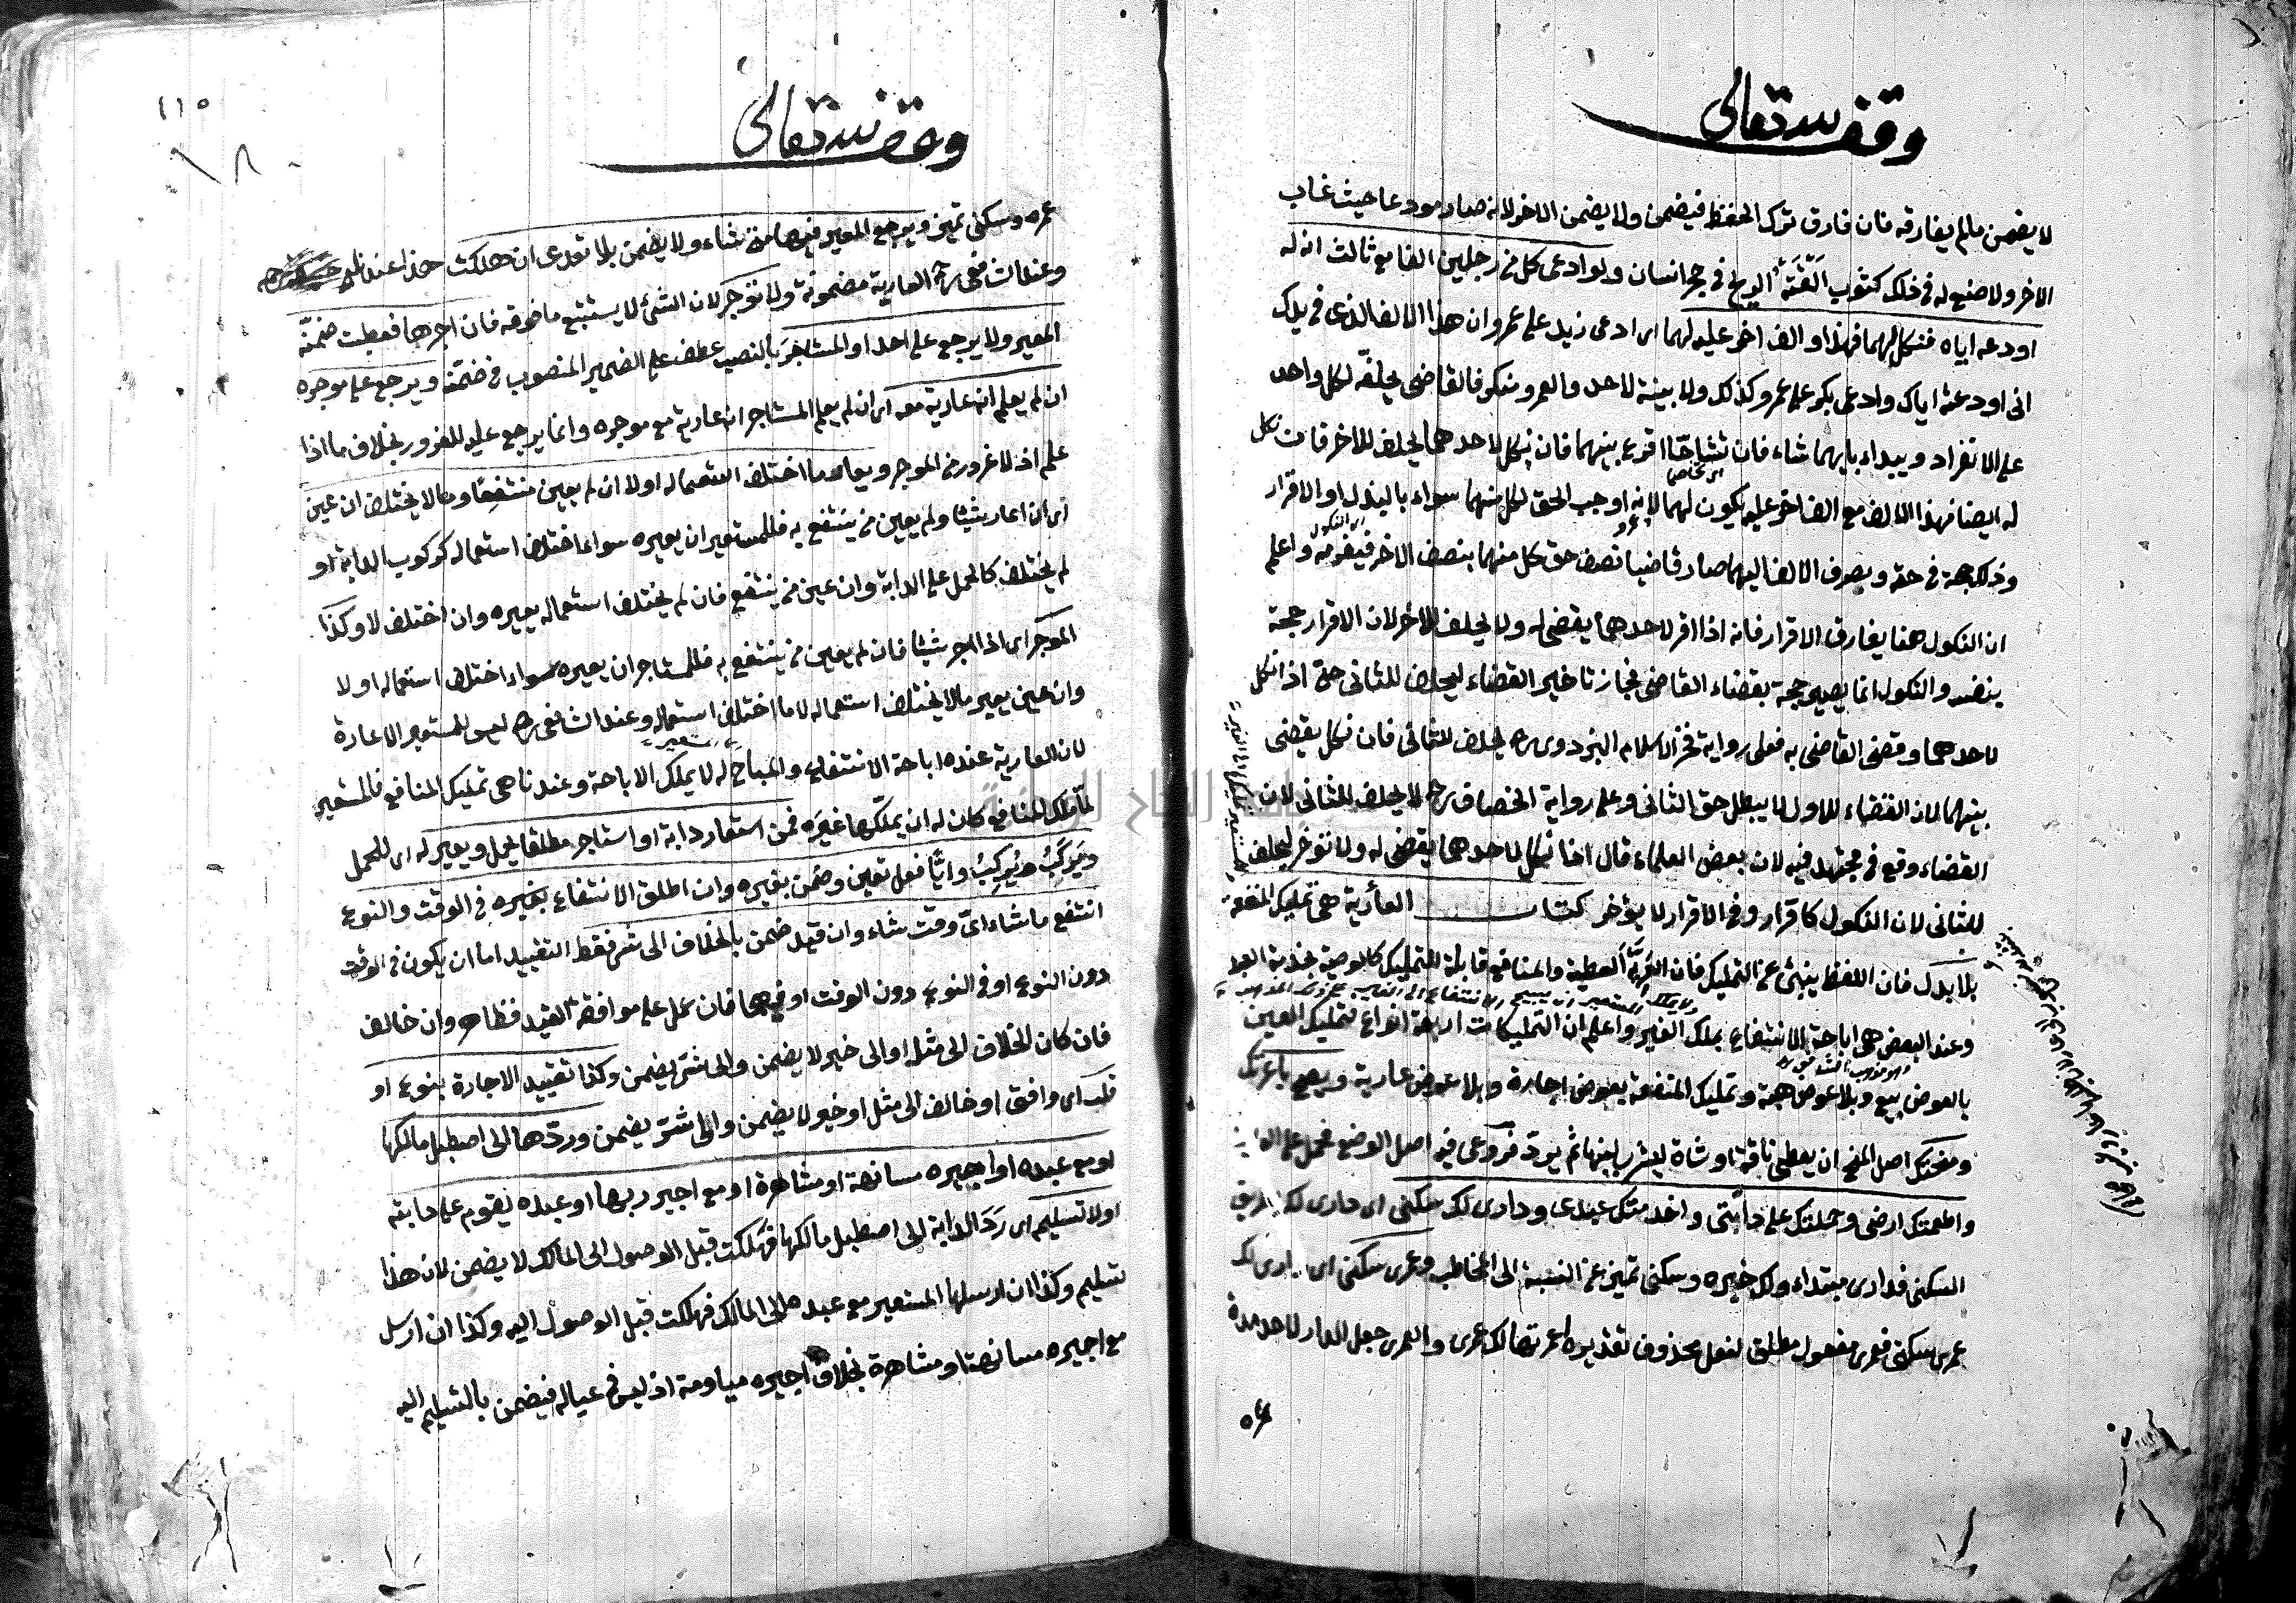 وقف لله تعالى
لا يضمن مالم يفارقه فان فارق ترك الحفظ فيضمن ولا يضمن الاخر لانه صار مودعا حيث غاب
الاخر ولا صنع له في ذلك كثوب القته الريح في حجر انسان ولو ادعى كل من رجلين الفا مع ثالث انه له
اودعه اياه فنكل لهما فهذا والف اخر عليه لهما اى ادعى زيد على عمرو ان هذا الالف الذى في يدك
انى اودعته اياك وادعى بكر على عمرو كذلك ولا بينة لاحد والعمرو منكر فالقاضى يحلفه لكل واحد
على الانفراد ويبداء بايهما شاء فان تشاحا اقرع بينهما فان نكل لاحدهما يحلف للاخر فان نكل
له ايضا فهذا الالف مع الف اخر عليه يكون لهما لانه اوجب الحق لكل منهما سواء بالبذل او الاقرار
وذلك حجة في حقه وبصرف الالف اليهما صار قاضيا نصف حق كل منهما بنصف الاخر فيغرمه واعلم
اى النكول
ان النكول هنا يفارق الاقرار فانه اذا اقر لاحدهما يقضى له ولا يحلف للاخر لان الاقرار حجة
بنفسه والنكول انما يصير حجة بقضاء القاضى فجاز تاخير القضاء ليحلف للثانى حتى اذا نكل
لاحدهما وقضى القاضى به فعلى رواية فخر الاسلام البزدوى رح يحلف للثانى فان نكل يقضى
بينهما لان القضاء للاول لا يبطل حق الثانى وعلى رواية الخصاف رح لا يحلف للثانى لان
القضاء وقع في مجتهد فيه لان بعض العلماء قال اذا نكل لاحدهما يقضى له ولا نؤخر ليحلف
للثانى لان النكول كاقرار وفي الاقرار لا يؤخر كتاب العارية هى تمليك المنفعة
بلا بدل فان اللفظ ينبئ عن التمليك فان العرية العطية والمنافع قابلة للتمليك كالوصية بخدمة العبد
وعند البعض هى اباحة الانتفاع بملك الغير واعلم ان التمليكات اربعة انواع تمليك العين
بالعوض بيع وبلا عوض هبة وتمليك المنفعة بعوض اجارة وبلا عوض عارية ويصح باعرتك
ومنحتك اصل المنح ان يعطى ناقة او شاة ليشرب لبنها ثم يرد فروعى فيه اصل الوضع فحمل على
واطعمتك ارضى وحملتك على دابتى واخدمتك عبدى ودارى لك سكنى اى دارى لك بطريق
السكنى فدارى مبتداء ولك خبره وسكنى تميز عن النسبة الى المخاطب وعمرى سكنى اى دارى لك
عمرى سكنى فعمرى مفعول مطلق لفعل محذوف تقديره اعمرتها لك عمرى والعمرى جعل الدار لاحد مدة
عمره
وقف لله تعالى
١١٥
عمره وسكنى تميز ويرجع المعير فيهما متى شاء ولا يضمن بلا تعدى ان هلكت هذا عندنا
وعند الشافعى رح العارية مضمونة ولا تؤجر لان الشئ لا يستتبع ما فوقه فان اجرها فعطبت ضمنه
المعير ولا يرجع على احد او المستاجر بالنصب عطف على الضمير المنصوب في ضمنه ويرجع على موجره
ان لم يعلم انه عارية معه اى ان لم يعلم المستاجر انه عارية مع موجره وانما يرجع عليه للغرور بخلاف ما اذا
علم اذ لا غرور من الموجر ويعار ما اختلف استعماله اولا ان لم يعين منتفعا وما لا يختلف ان عين
اى ان اعار شيئا ولم يعين من ينتفع به فللمستعير ان يعيره سواء اختلف استعماله كركوب الدابة او
لم يختلف كالحمل على الدابة وان عين من ينتفع فان لم يختلف استعماله يعيره وان اختلف لا وكذا
الموجر اى اذا اجر شيئا فان لم يعين من ينتفع به فللمستاجر ان يعيره سواء اختلف استعماله اولا
وان عين يعير مالا يختلف استعماله لا ما اختلف استعماله وعند الشافعى رح ليس للمستعير الاعارة
لان العارية عنده اباحة الانتفاع والمباح له لا يملك الاباحة وعندنا هى تمليك المنافع فالمستعير
لما ملك المنافع كان له ان يملكها غيره فمن استعار دابة او استاجر مطلقا يحمل ويعير له اى للحمل
ويركب ويركب وايا فعل تعين وضمن بغيره وان اطلق الانتفاع بغيره في الوقت والنوع
انتفع ما شاء اى وقت شاء وان قيد ضمن بالخلاف الى شر فقط التقييد اما ان يكون في الوقت
دون النوع او في النوع دون الوقت او فيهما فان عمل على موافقة القيد فظاهر وان خالف
فان كان الخلاف الى مثل او الى خير لا يضمن والى شر يضمن وكذا تقييد الاجارة بنوع او
قدر اى وافق او خالف الى مثل او خير لا يضمن والى شر يضمن وردها الى اصطبل مالكها
او مع عبده او اجيره مسانهة او مشاهرة او مع اجير ربها او عبده يقوم على دابته
اولا تسليم اى رد الدابة الى اصطبل مالكها فهلكت قبل الوصول الى المالك لا يضمن لان هذا
تسليم وكذا ان ارسلها المستعير مع عبده الى المالك فهلكت قبل الوصول اليه وكذا ان ارسل
مع اجيره مسانهة او مشاهرة بخلاف اجيره مياومة اذ ليس في عياله فيضمن بالتسليم اليه